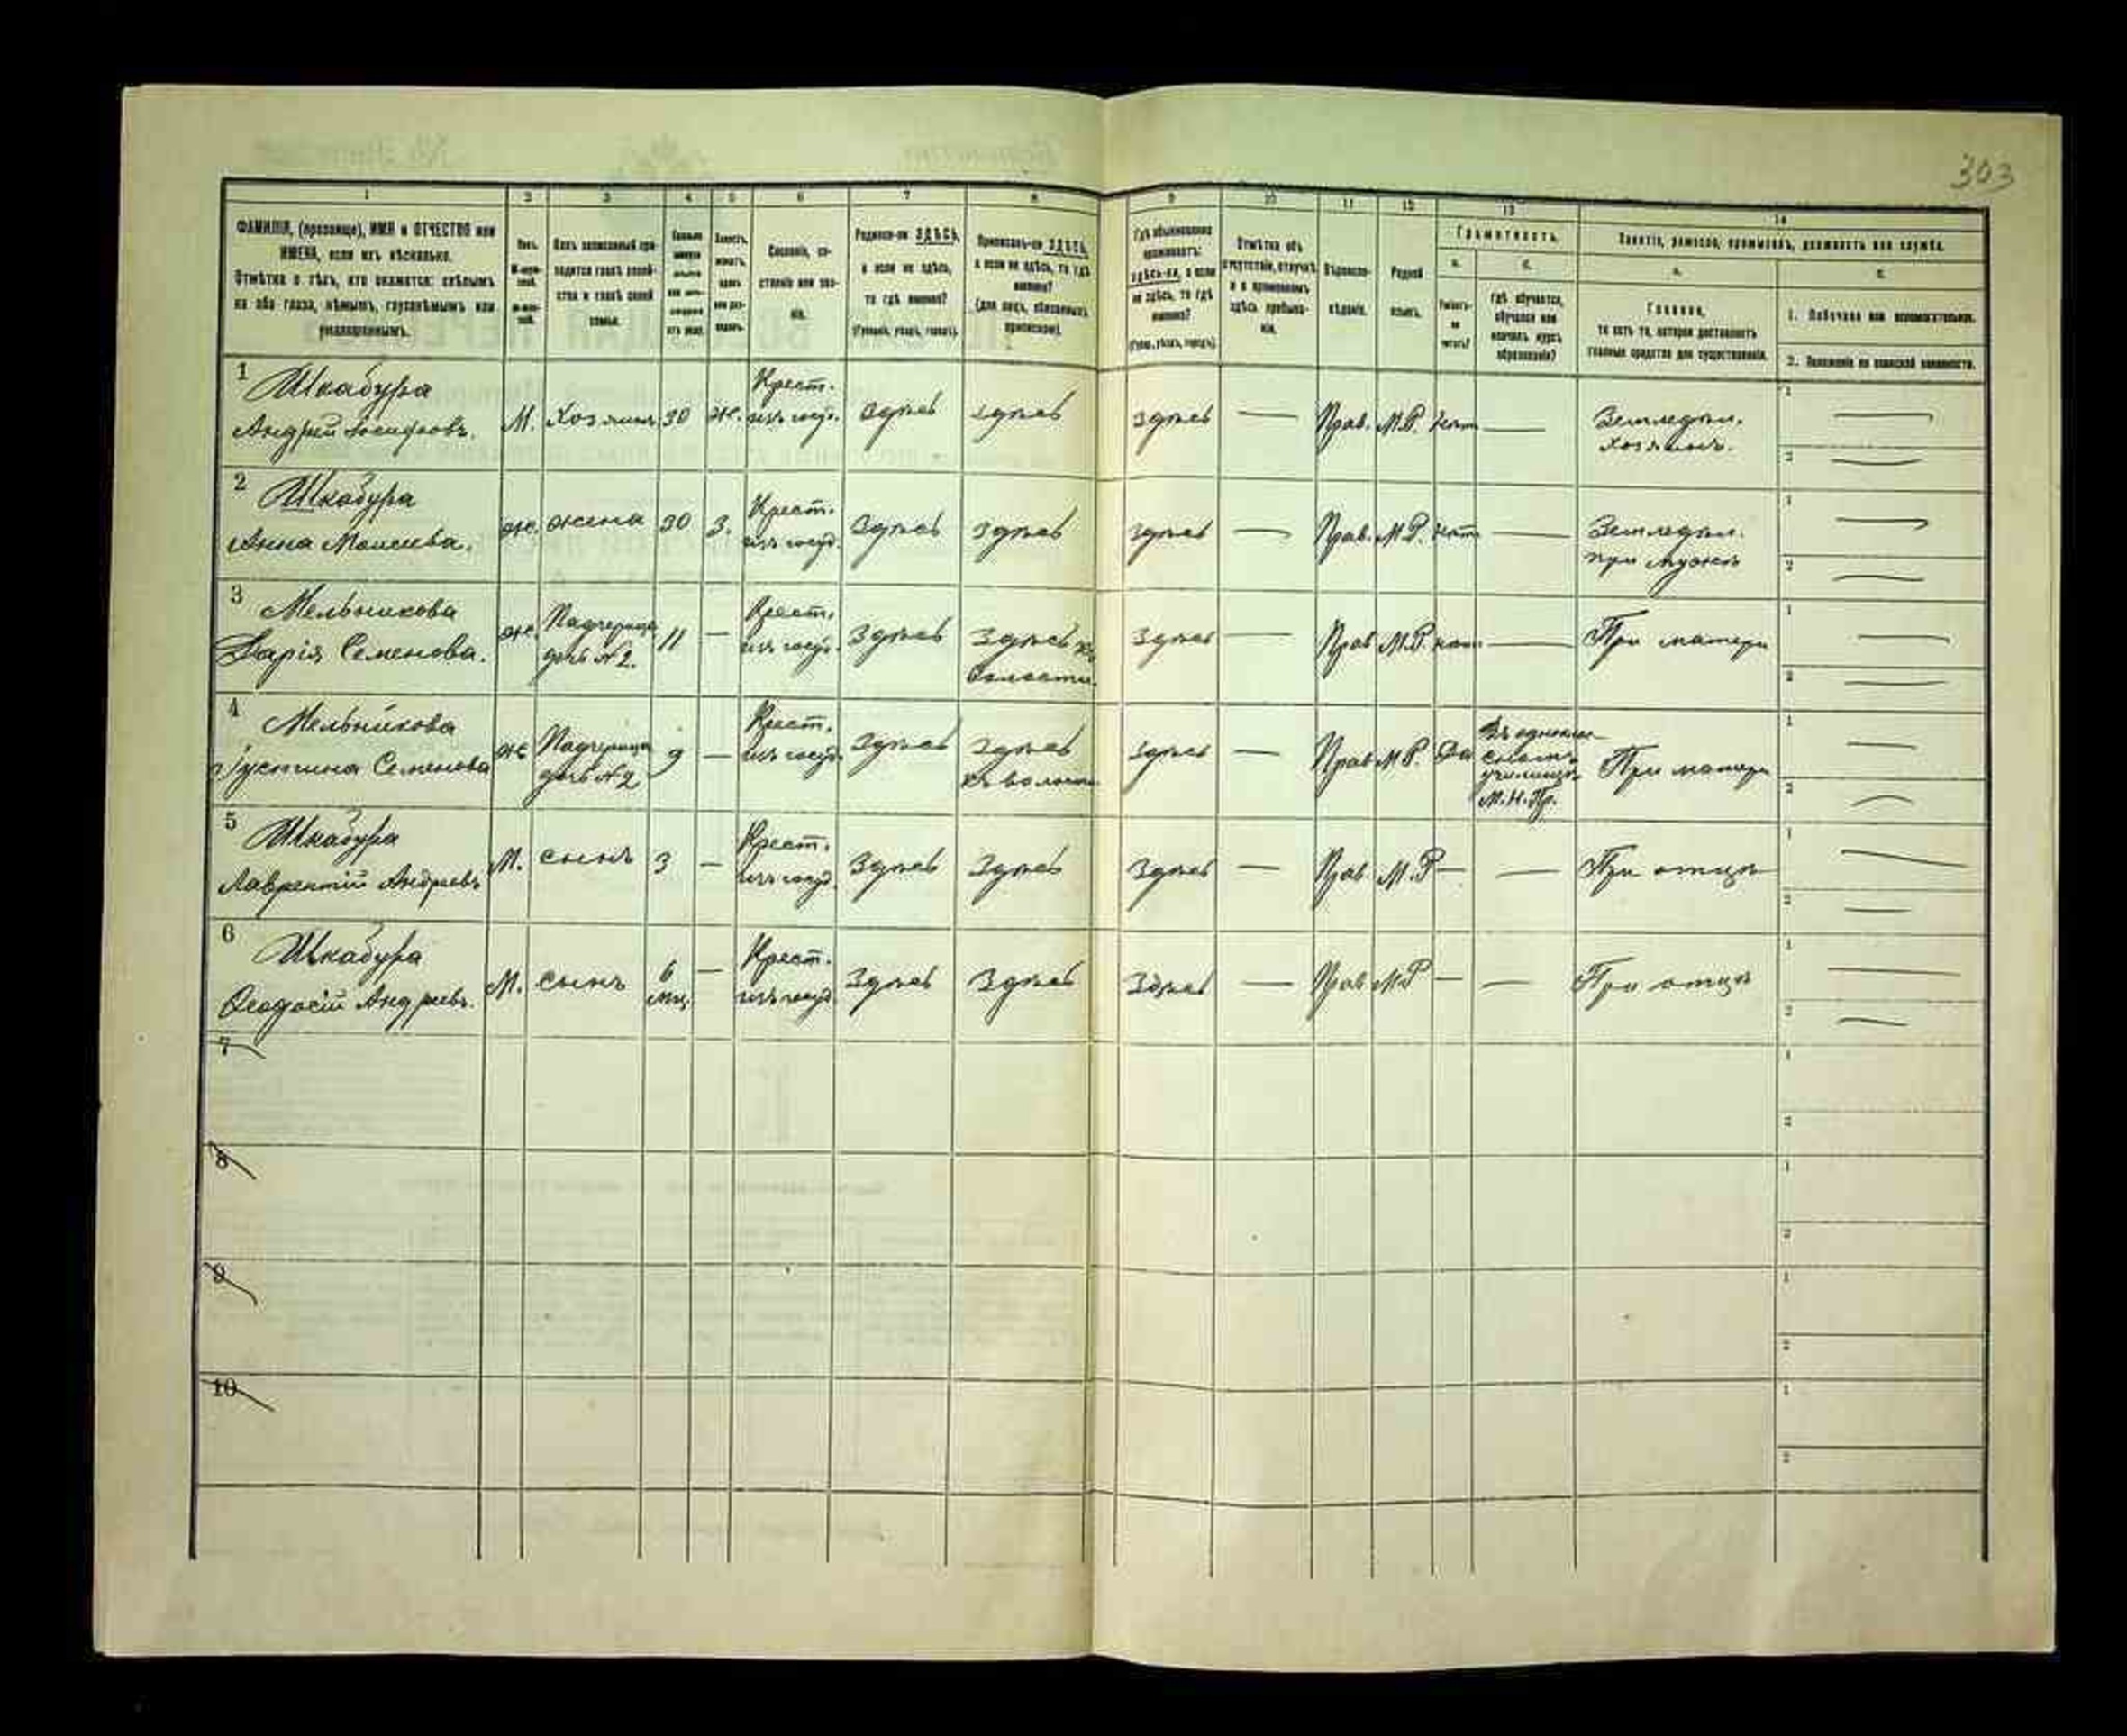 303
1 2 3 4 5 6 7 8 9 10 11 12 13 14
ФАМИЛІЯ, (прозвище), ИМЯ и ОТЧЕСТВО или
ИМЕНА, если ихъ нѣсколько.
Отмѣтка о тѣхъ, кто окажется: слѣпымъ
на оба глаза, нѣмымъ, глухонѣмымъ или
умалишеннымъ.
Полъ.
Какъ записанный при-
ходится главѣ хозяй-
ства и главѣ своей
семьи.
Сословіе, со-
стояніе или зва-
ніе.
Родился-ли ЗДѢСЬ,
а если не здѣсь,
то гдѣ именно?
(Губернія, уѣздъ, городъ).
Приписанъ-ли ЗДѢСЬ,
а если не здѣсь, то гдѣ
именно?
(для лицъ, обязанныхъ
припиской).
Гдѣ обыкновенно
проживаетъ:
ЗДѢСЬ-ЛИ, а если
не здѣсь, то гдѣ
именно?
(Губер., уѣздъ, городъ).
Отмѣтка объ
отсутствіи, отлучкѣ
и о временномъ
здѣсь пребыва-
ніи.
Вѣроиспо-
вѣданіе.
Родной
языкъ.
Грамотность.
а. б.
Умѣетъ-
ли
читать?
гдѣ обучается,
обучался или
кончилъ курсъ
образованія?
Занятіе, ремесло, промыселъ, должность или служба.
а. б.
Главное,
то есть то, которое доставляетъ
главныя средства для существованія.
1. Побочное или вспомогательное.
2. Положеніе по воинской повинности.
1 Шкабура
Андрей Іосифовъ. М. Хозяинъ 30 ж. Крест. изъ госуд. Здѣсь Здѣсь Здѣсь — Прав. М.Р. Нѣтъ — Земледѣл. хозяинъ. 1 — 2 —
2 Шкабура
Анна Моисеева. ж. жена 30 З. Крест. изъ госуд. Здѣсь Здѣсь Здѣсь — Прав. М.Р. Нѣтъ — Земледѣл. при мужѣ 1 — 2 —
3 Мельникова
Дарія Семенова. ж. Падчерица дочь №2. 11 — Крест. изъ госуд. Здѣсь Здѣсь къ волости. Здѣсь — Прав М.Р. нѣтъ — При матери 1 — 2 —
4 Мельникова
Іустина Семенова ж Падчерица дочь №2 9 — Крест. изъ госуд. Здѣсь Здѣсь къ волости Здѣсь — Прав М.Р. Да Въ одноклассномъ училищѣ М.Н.Пр. При матери 1 — 2 —
5 Шкабура
Лаврентій Андреевъ М. сынъ 3 — Крест. изъ госуд. Здѣсь Здѣсь Здѣсь — Прав. М.Р — — При отцѣ 1 — 2 —
6 Шкабура
Ѳеодосій Андреевъ. М. сынъ 6 мѣц. — Крест. изъ госуд. Здѣсь Здѣсь Здѣсь — Прав М.Р — — При отцѣ 1 — 2 —
7 1 2
8 1 2
9 1 2
10 1 2